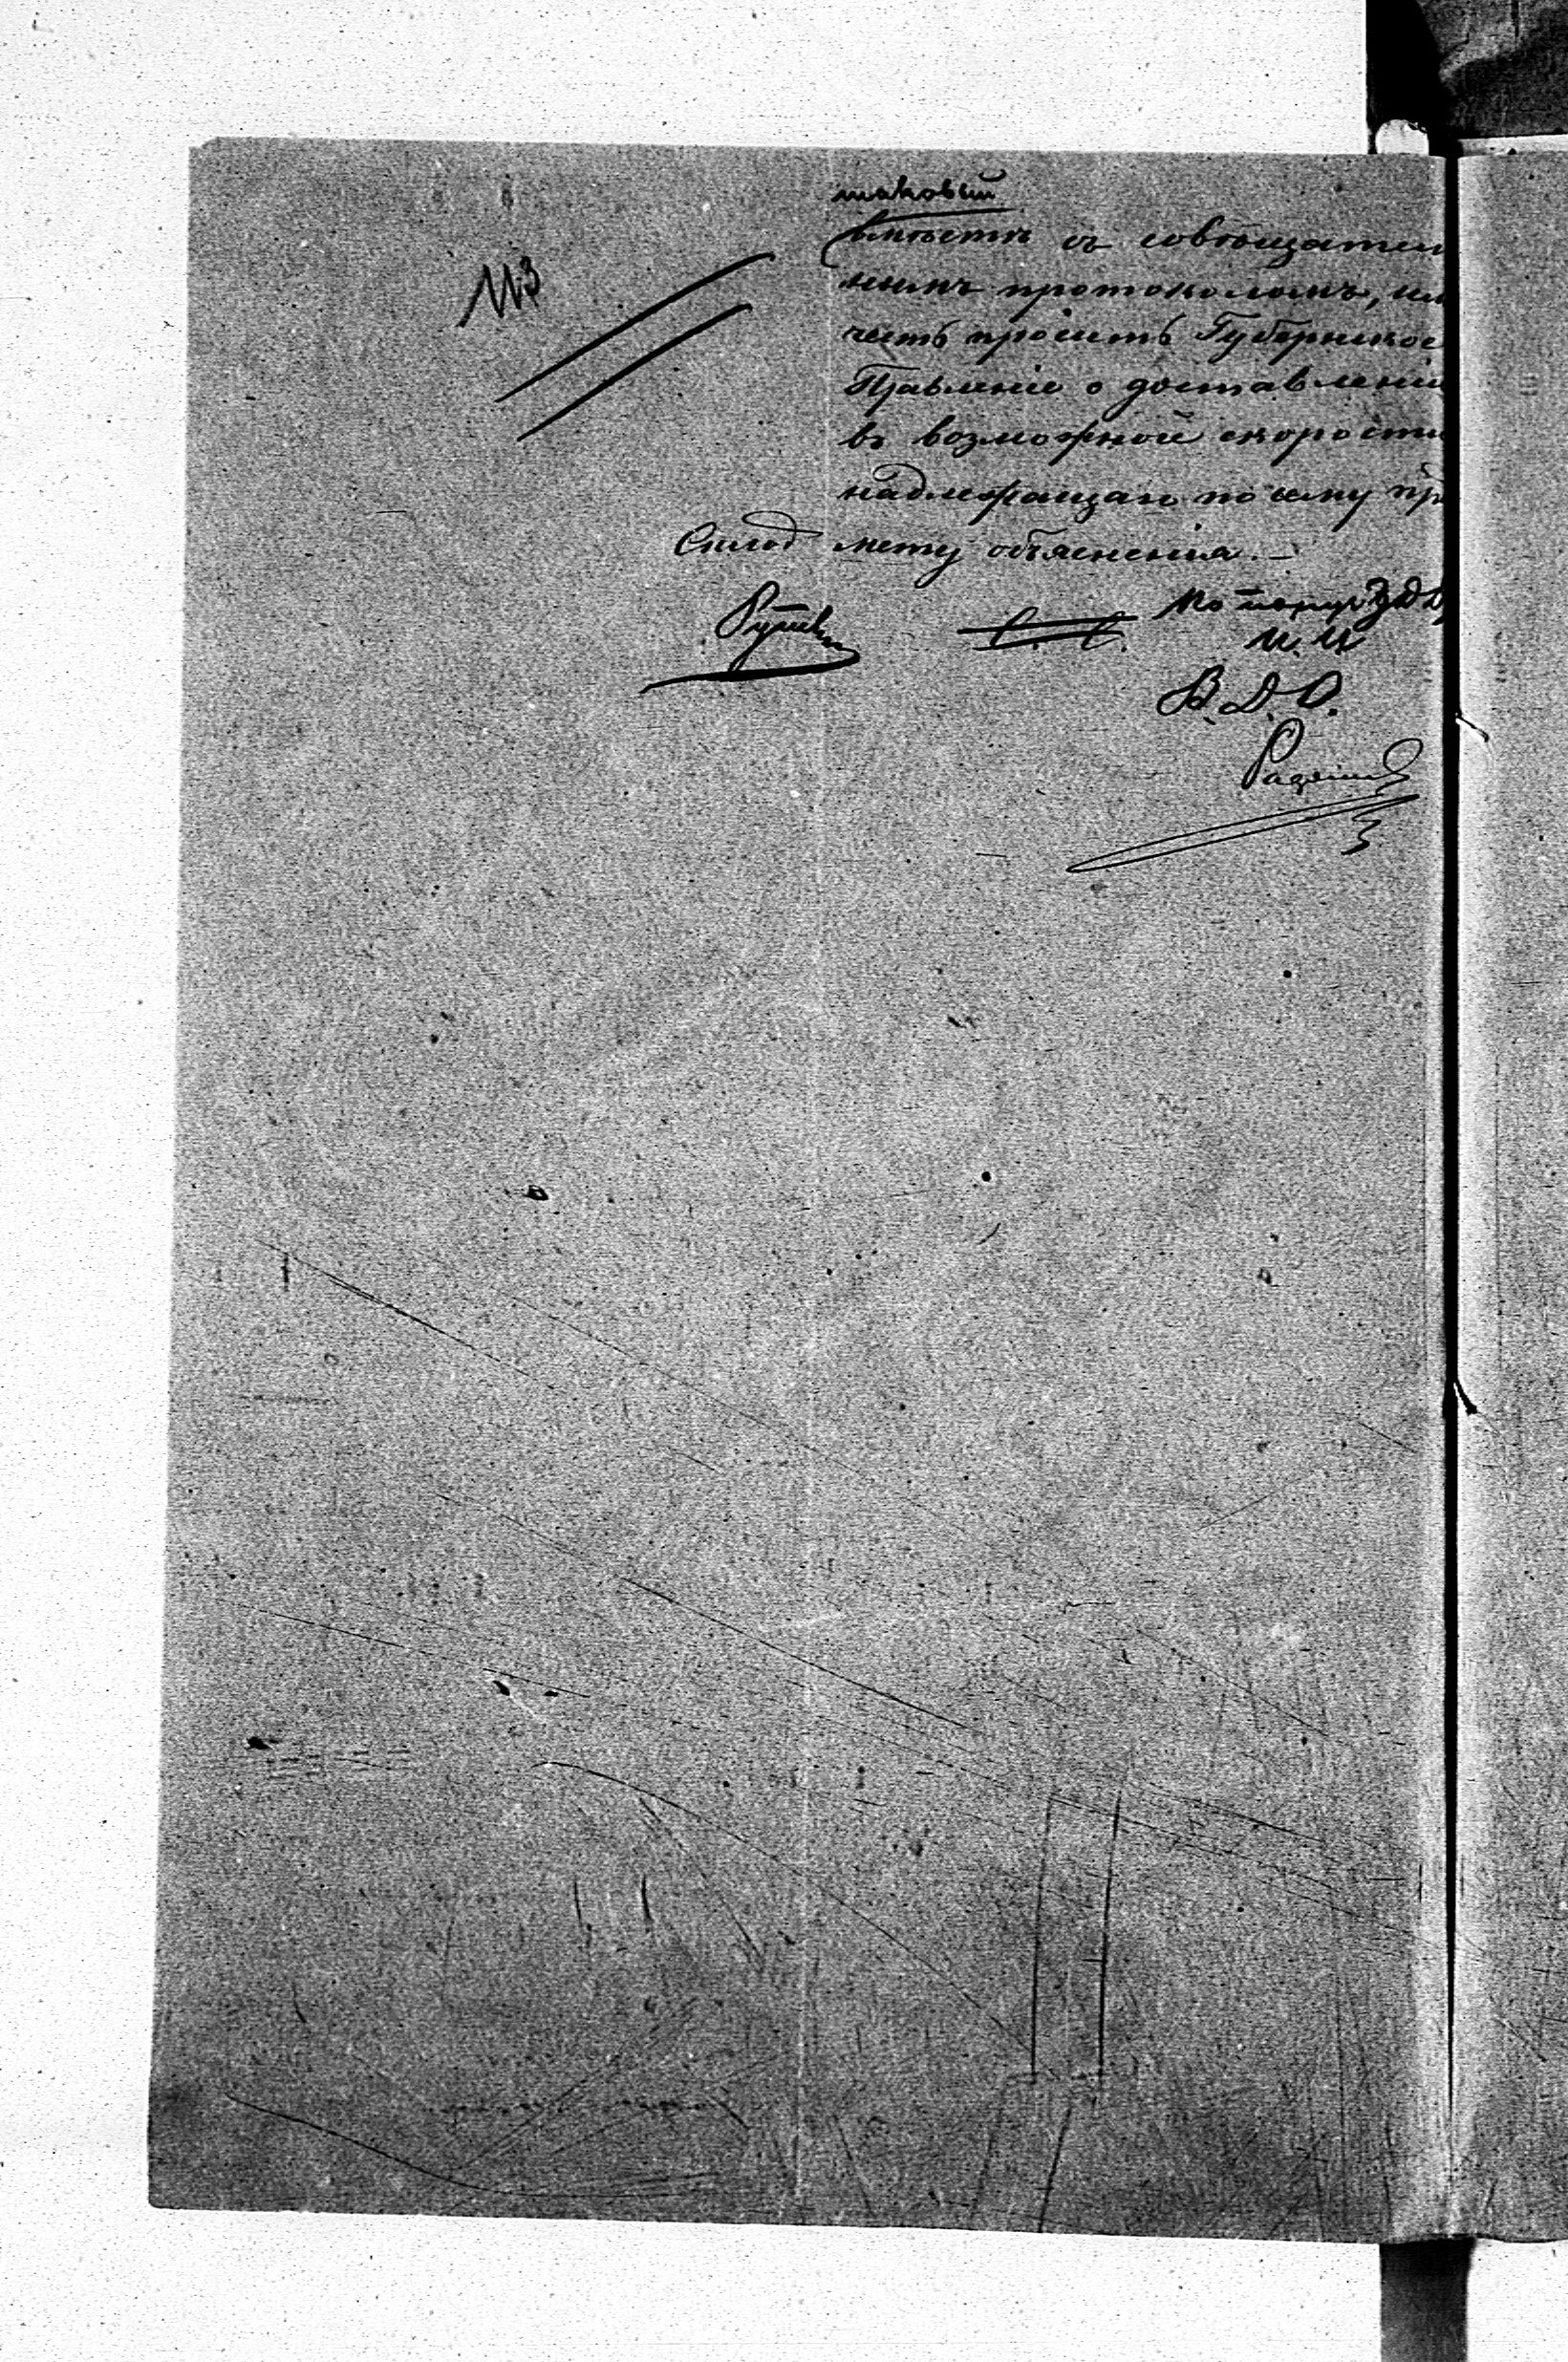 113
таковый
вмѣстѣ съ совѣщатель
нымъ протоколомъ, им
честь просить Губернское
Правленіе о доставленіи
въ возможной скорости
надлежащаго по сему пр
мету объясненія. —
По
И. И
В. Д. О.